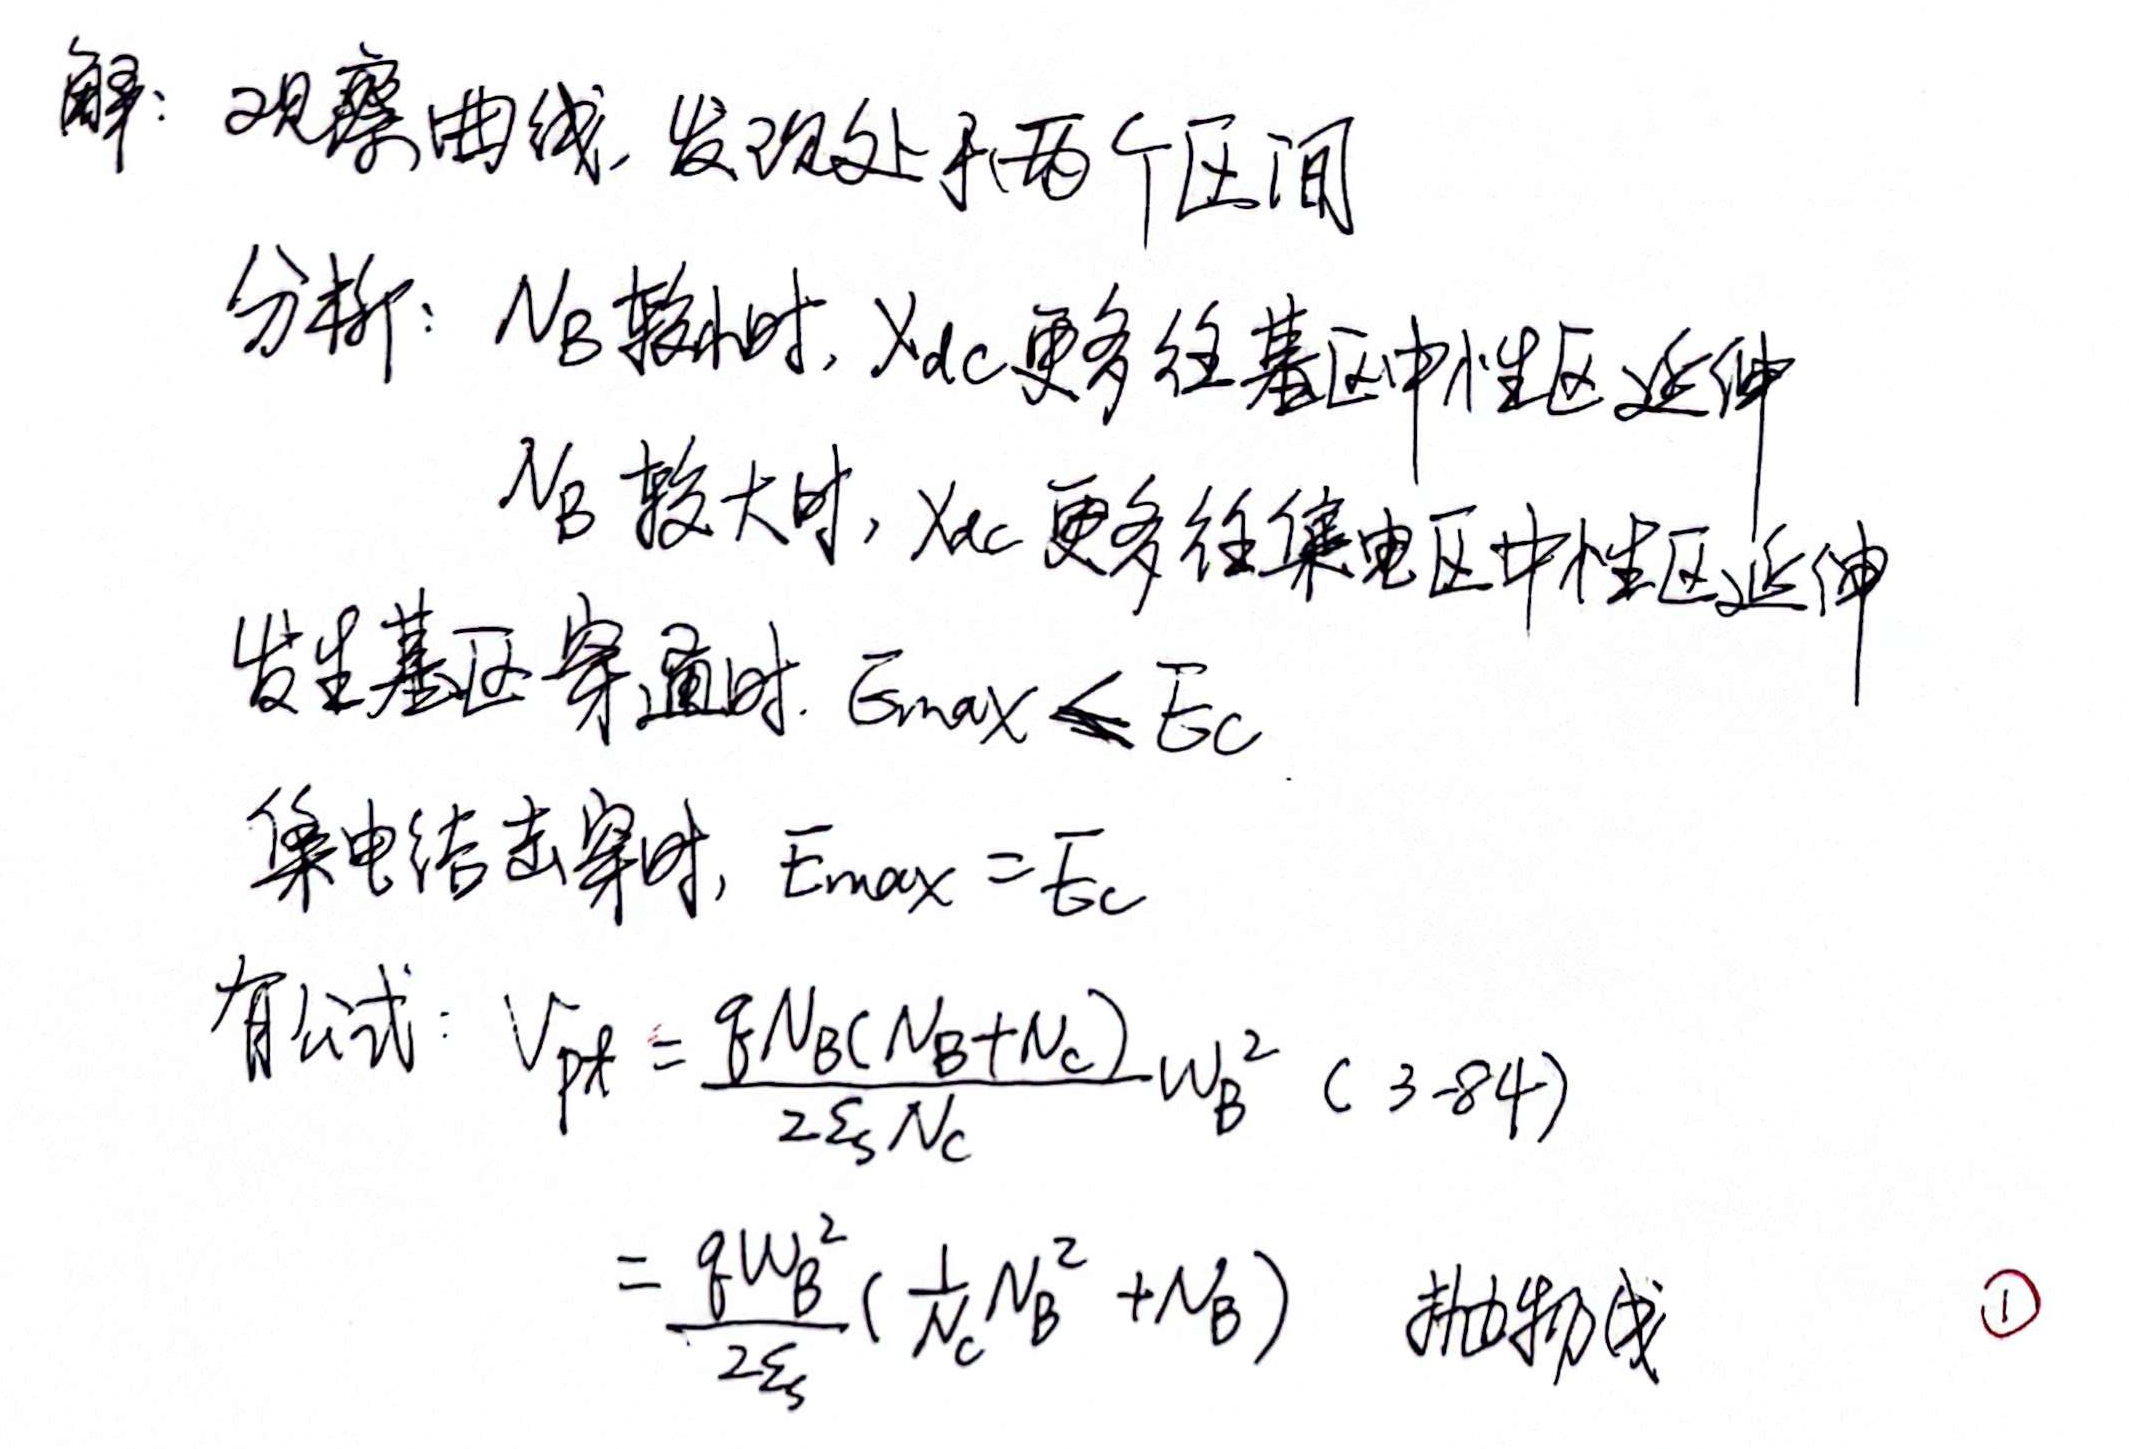 解：观察曲线，发现处于两个区间
分析：N_B较小时，X_dc更多往基区中性区延伸
N_B较大时，X_dc更多往集电区中性区延伸
发生基区穿通时. E_max < E_C
集电结击穿时，E_max = E_C
有公式：V_pt = \frac{qN_B(N_B+N_C)}{2ε_s N_C} W_B^2 (3-84)
= \frac{qW_B^2}{2ε_s} (\frac{1}{N_C} N_B^2 + N_B) 抛物线 ①